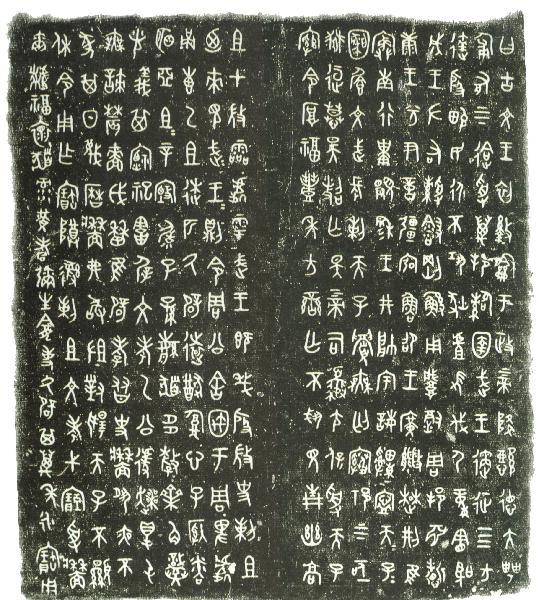 曰古文王初盭龢于政上帝降懿德大甹
匍有上下迨受萬邦圉武王遹征四方
達殷畯民永不巩狄虘伐尸童憲聖
成王左右綬會剛鯀用肇徹周邦淵哲
康王兮尹億疆弘魯邵王廣能楚荊隹
狩南行祗顯穆王井帥宇誨申寧天子
天子恪纘文武長剌天子眉無匄祁上下
亟獄逗慕昊照亡斁上帝司夒尪保受天子
綰令厚福豐年方蠻亡不見青幽高
且才微靈處雩武王既殷微史剌且
迺來見武王武王則令周公舍宇于周卑處
甬叀乙且逨匹氒辟遠猷腹心子納
粦明亞且且辛毓子孫繁祓多釐齊角熾
光義其禋祀害遲文考乙公遽爽得
屯無諫農嗇戉曆隹辟孝友史墻夙夜不
彖其日蔑曆墻弗敢沮對揚天子不顯
休令用乍寶尊彝剌且文考弋受墻
爾福懷祓彔黃耇彌生龕事氒辟其萬年永寶用